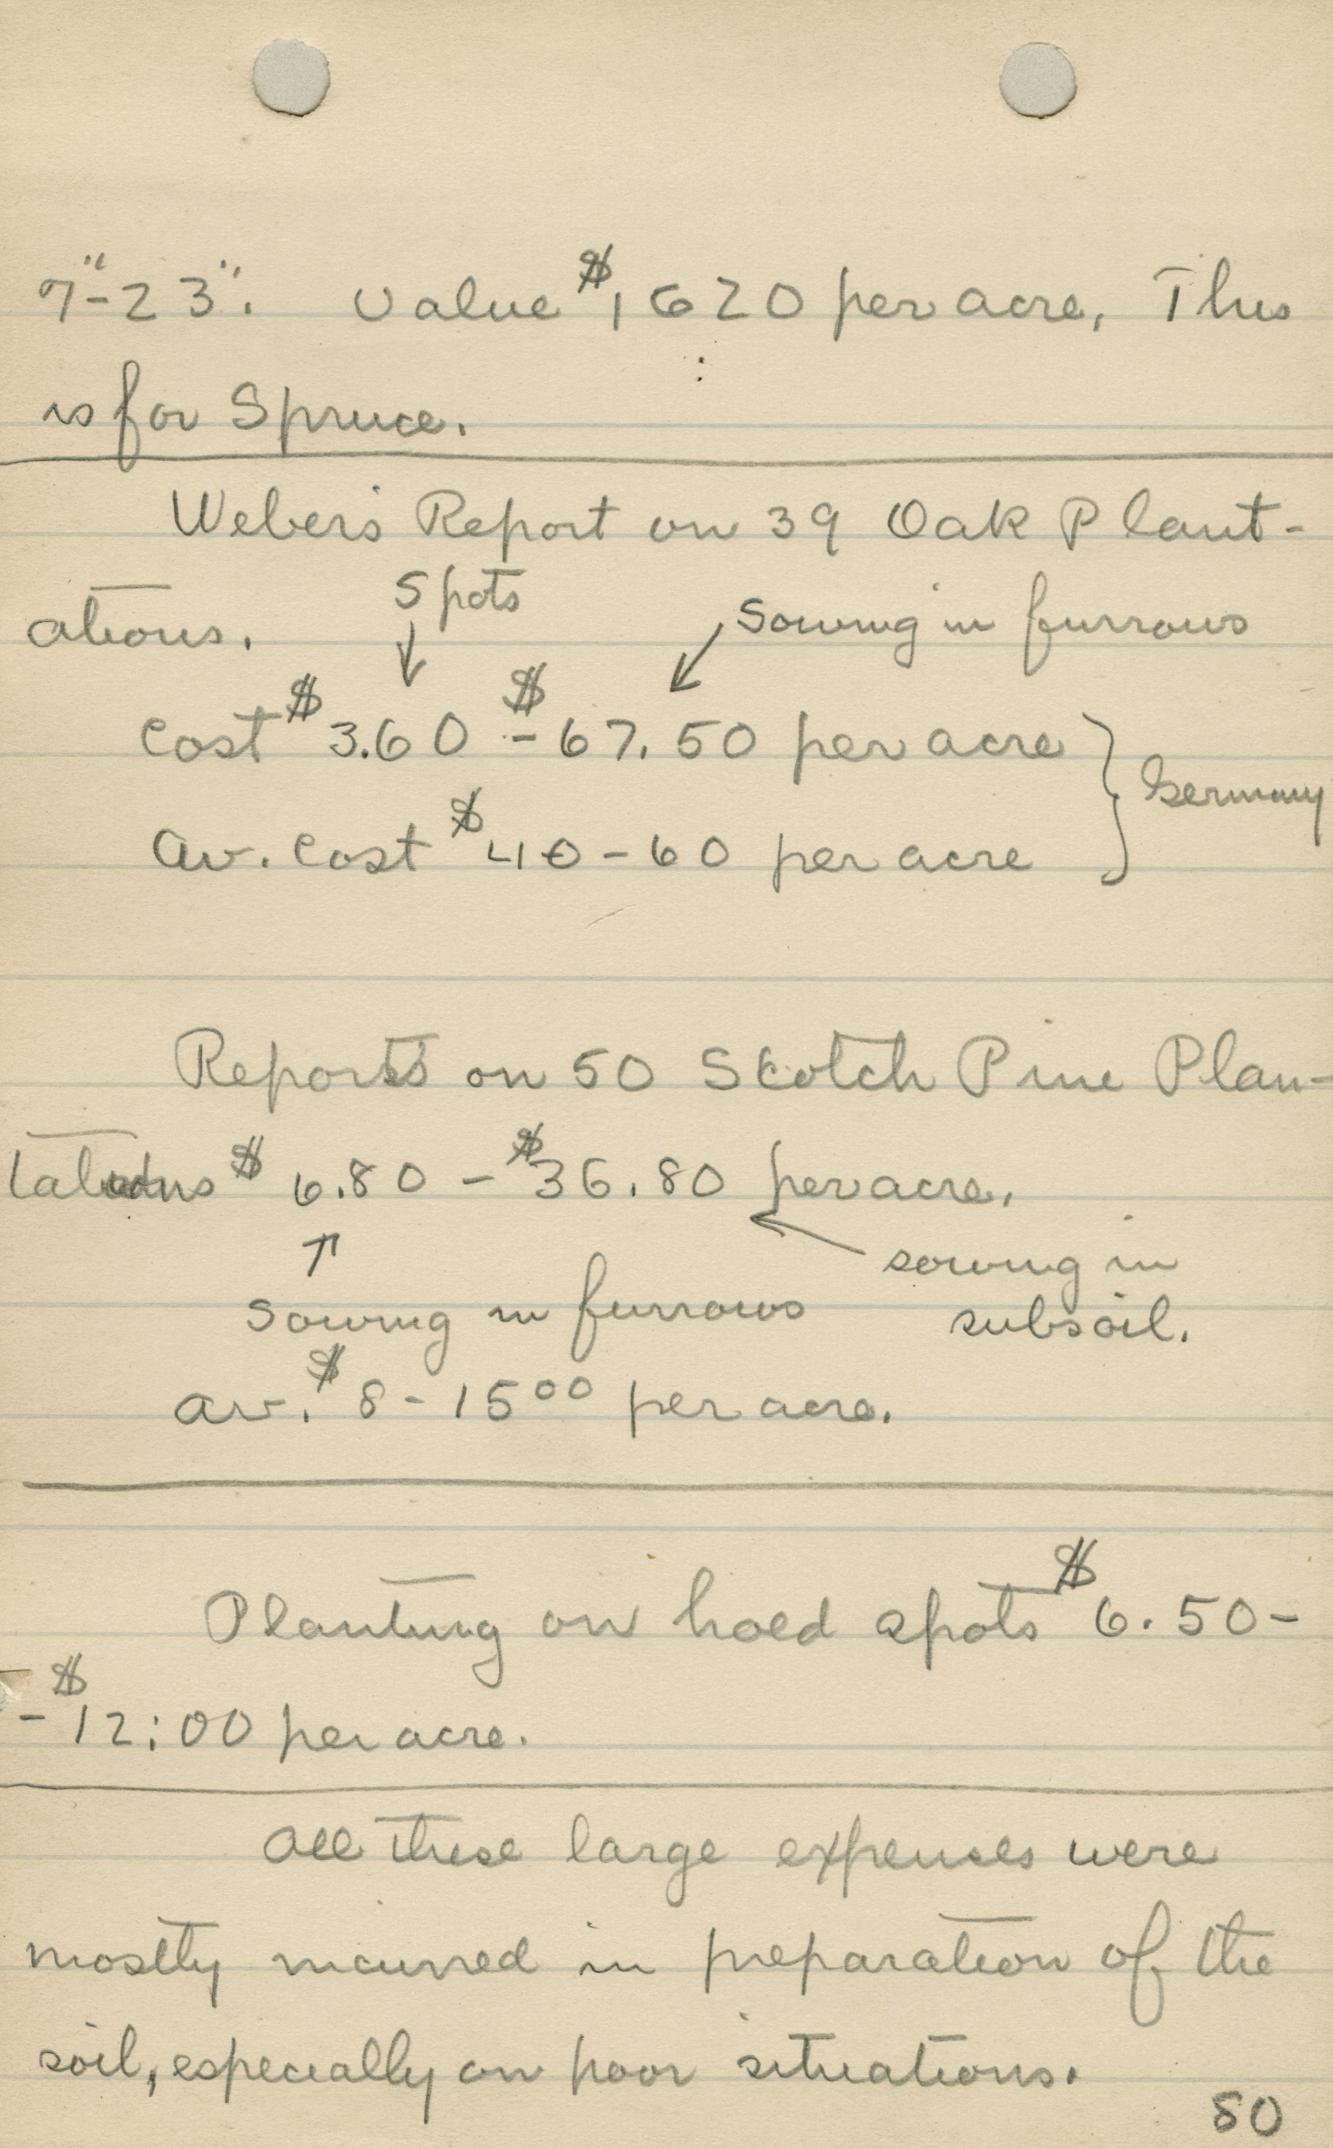 7"-23". Value $1620 per acre, This
is for Spruce.
Weber's Report on 39 Oak Plant-
ations.
Spots
Sowing in furrows
Cost $3.60 - $67.50 per acre
Germany
Av. Cost $40-60 per acre
Reports on 50 Scotch Pine Plan-
tations $6.80 - $36.80 per acre.
sowing in
subsoil.
Sowing in furrows
av. $8-1500 per acre.
Planting on hoed spots $6.50-
-$12:00 per acre.
All these large expenses were
mostly incurred in preparation of the
soil, especially on poor situations.
50